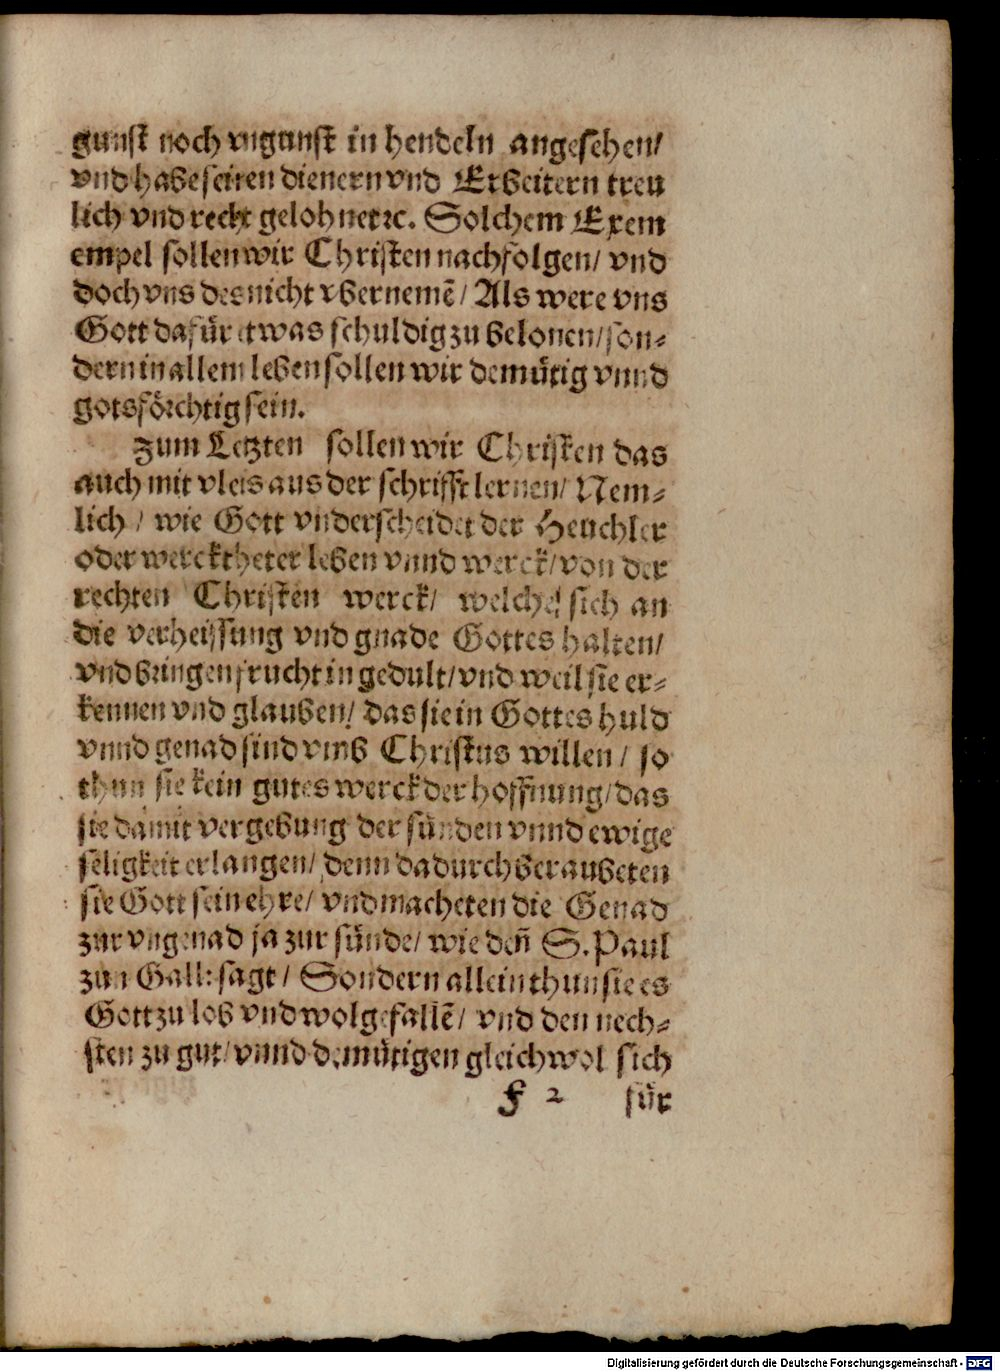 gunst noch vngunst in hendeln angesehen/
vnd habe seinen dienern vnd Erbeitern treu
lich vnd recht gelohnet ꝛc. Solchem Exem
empel sollen wir Christen nachfolgen/ vnd
doch vns des nicht vbernemẽ/ Als were vns
Gott dafür etwas schuldig zu belonen/ son⸗
dern in allem leben sollen wir demütig vnnd
gotsförchtig sein.
Zum Letzten sollen wir Christen das
auch mit vleis aus der schrifft lernen/ Nem⸗
lich/ wie Gott vnderscheidet der Heuchler
oder wercktheter leben vnnd werck/ von der
rechten Christen werck/ welche sich an
die verheissung vnd gnade Gottes halten/
vnd bringen frucht in gedult/ vnd weil sie er⸗
kennen vnd glauben/ das sie in Gottes huld
vnnd genad sind vmb Christus willen/ so
thun sie kein gutes werck der hoffnung/ das
sie damit vergebung der sünden vnnd ewige
seligkeit erlangen/ denn dadurch beraubeten
sie Gott sein ehre/ vnd macheten die Genad
zur vngenad ja zur sünde/ wie deñ S. Paul
zun Gall: sagt/ Sondern allein thun sie es
Gott zu lob vnd wolgefallẽ/ vnd den nech⸗
sten zu gut/ vnnd demütigen gleichwol sich
F 2 für
Digitalisierung gefördert durch die Deutsche Forschungsgemeinschaft - DFG